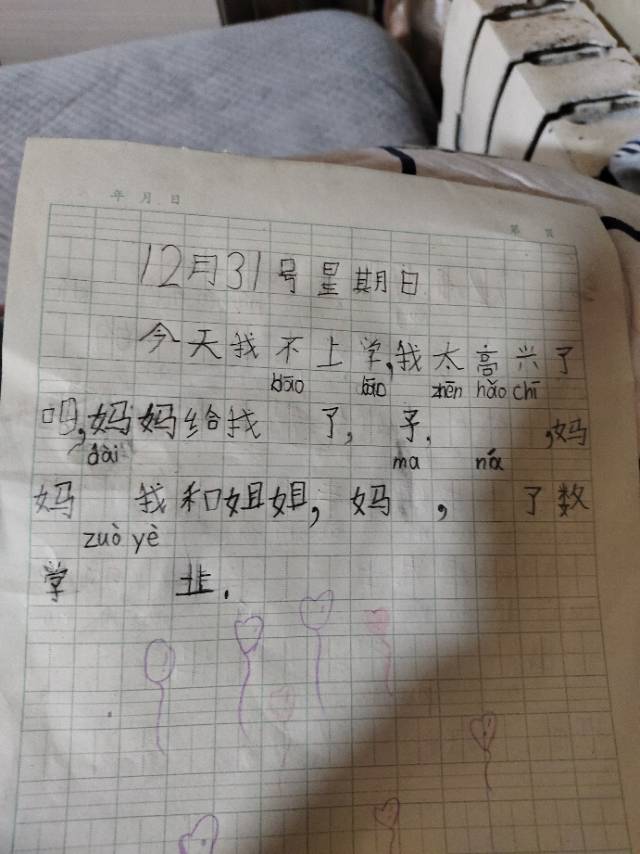 年 月 日
第 页
12月31号星期日
今天我不上学,我太高兴了
bāo bāo zhēn hǎo chī
吅,妈妈给找 了, 子. ,妈
dài ma ná
妈 我和姐姐, 妈 , 了数
zuò yè
学 业.